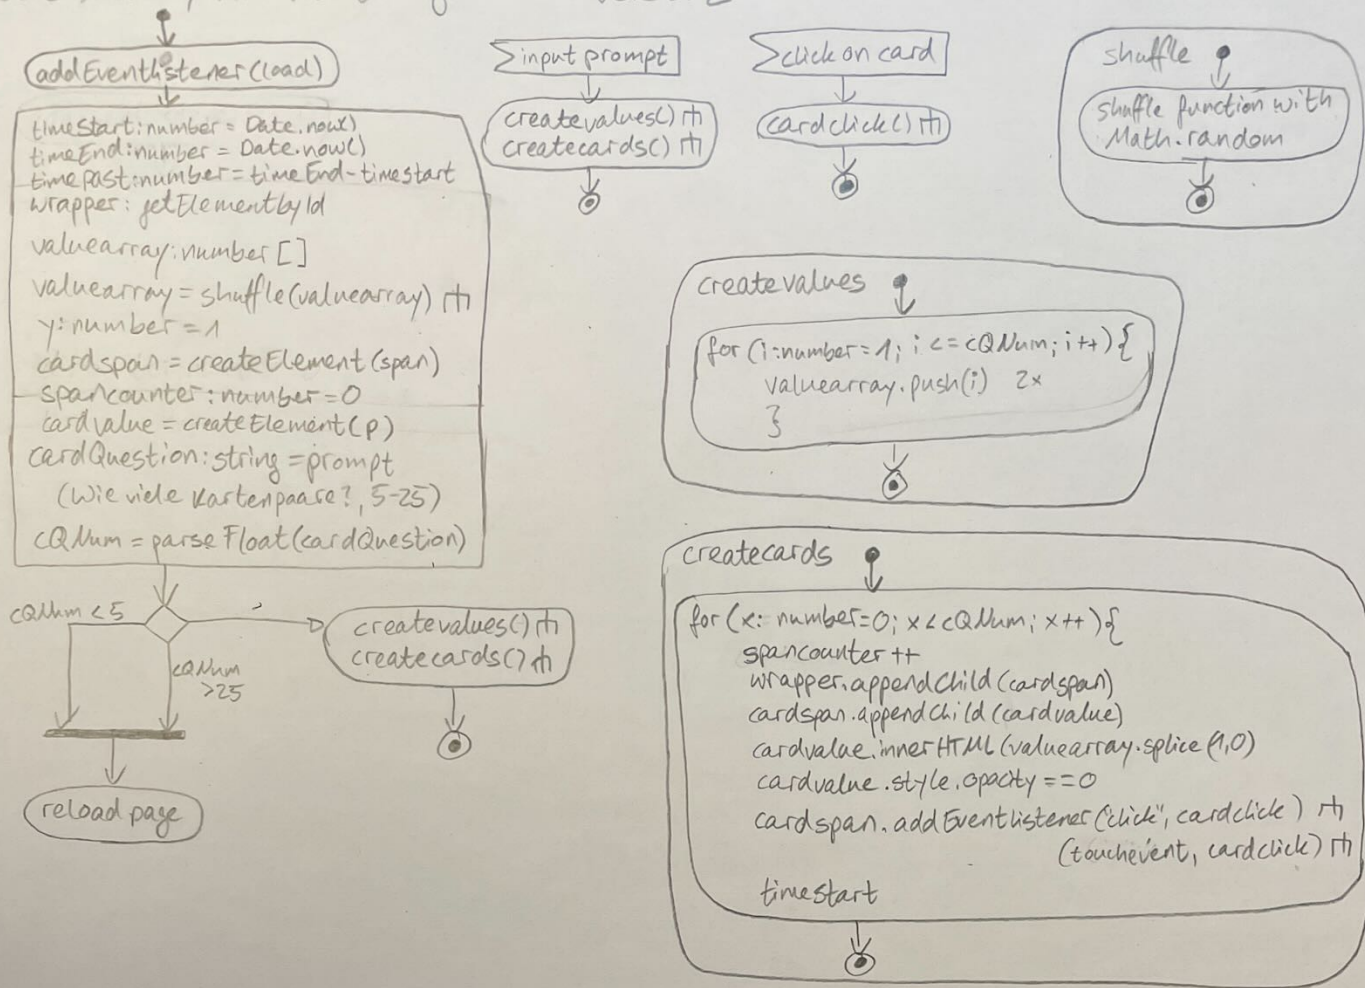 addEventListener(load)
timeStart:number = Date.now()
timeEnd:number = Date.now()
timepast:number=timeEnd-timestart
wrapper: getElementbyId
valuearray:number []
valuearray=shuffle(valuearray)
y:number=1
cardspan=createElement(span)
spancounter:number=0
cardvalue=createElement(p)
cardQuestion:string=prompt
(Wie viele Kartenpaare?, 5-25)
cQNum=parseFloat(cardQuestion)
cQNum <5
cQNum
>25
reload page
createvalues()
createcards()
input prompt
createvalues()
createcards()
click on card
cardclick()
shuffle
shuffle function with
Math.random
createvalues
for (i:number=1; i <= cQNum; i++){
valuearray.push(i) 2x
}
createcards
for (x: number=0; x<cQNum; x++){
spancounter++
wrapper.appendChild(cardspan)
cardspan.appendChild(cardvalue)
cardvalue.innerHTML(valuearray.splice(1,0)
cardvalue.style.opacity==0
cardspan.addEventListener("click", cardclick)
(touchevent, cardclick)
timestart